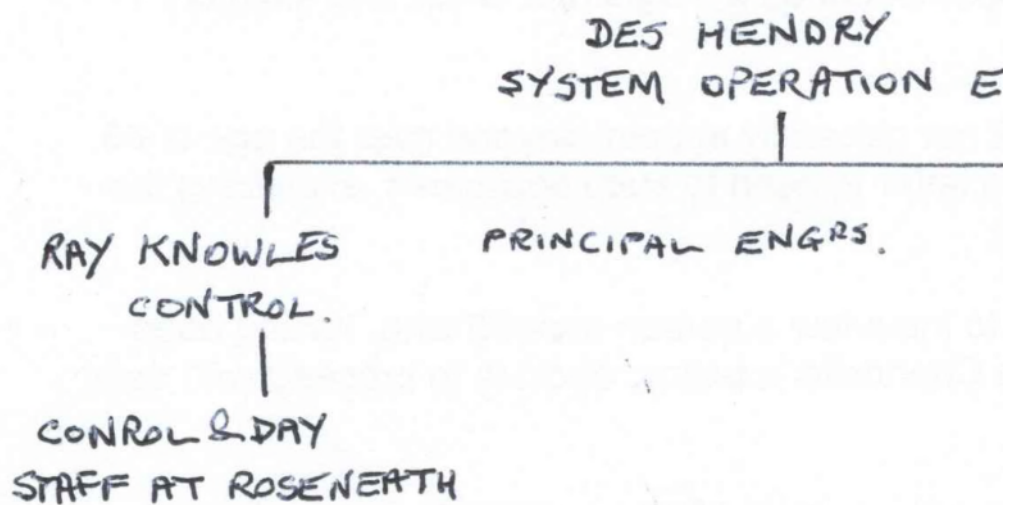 DES HENDRY
SYSTEM OPERATION E
RAY KNOWLES
PRINCIPAL ENGRS.
CONTROL.
CONROL & DAY
STAFF AT ROSENEATH